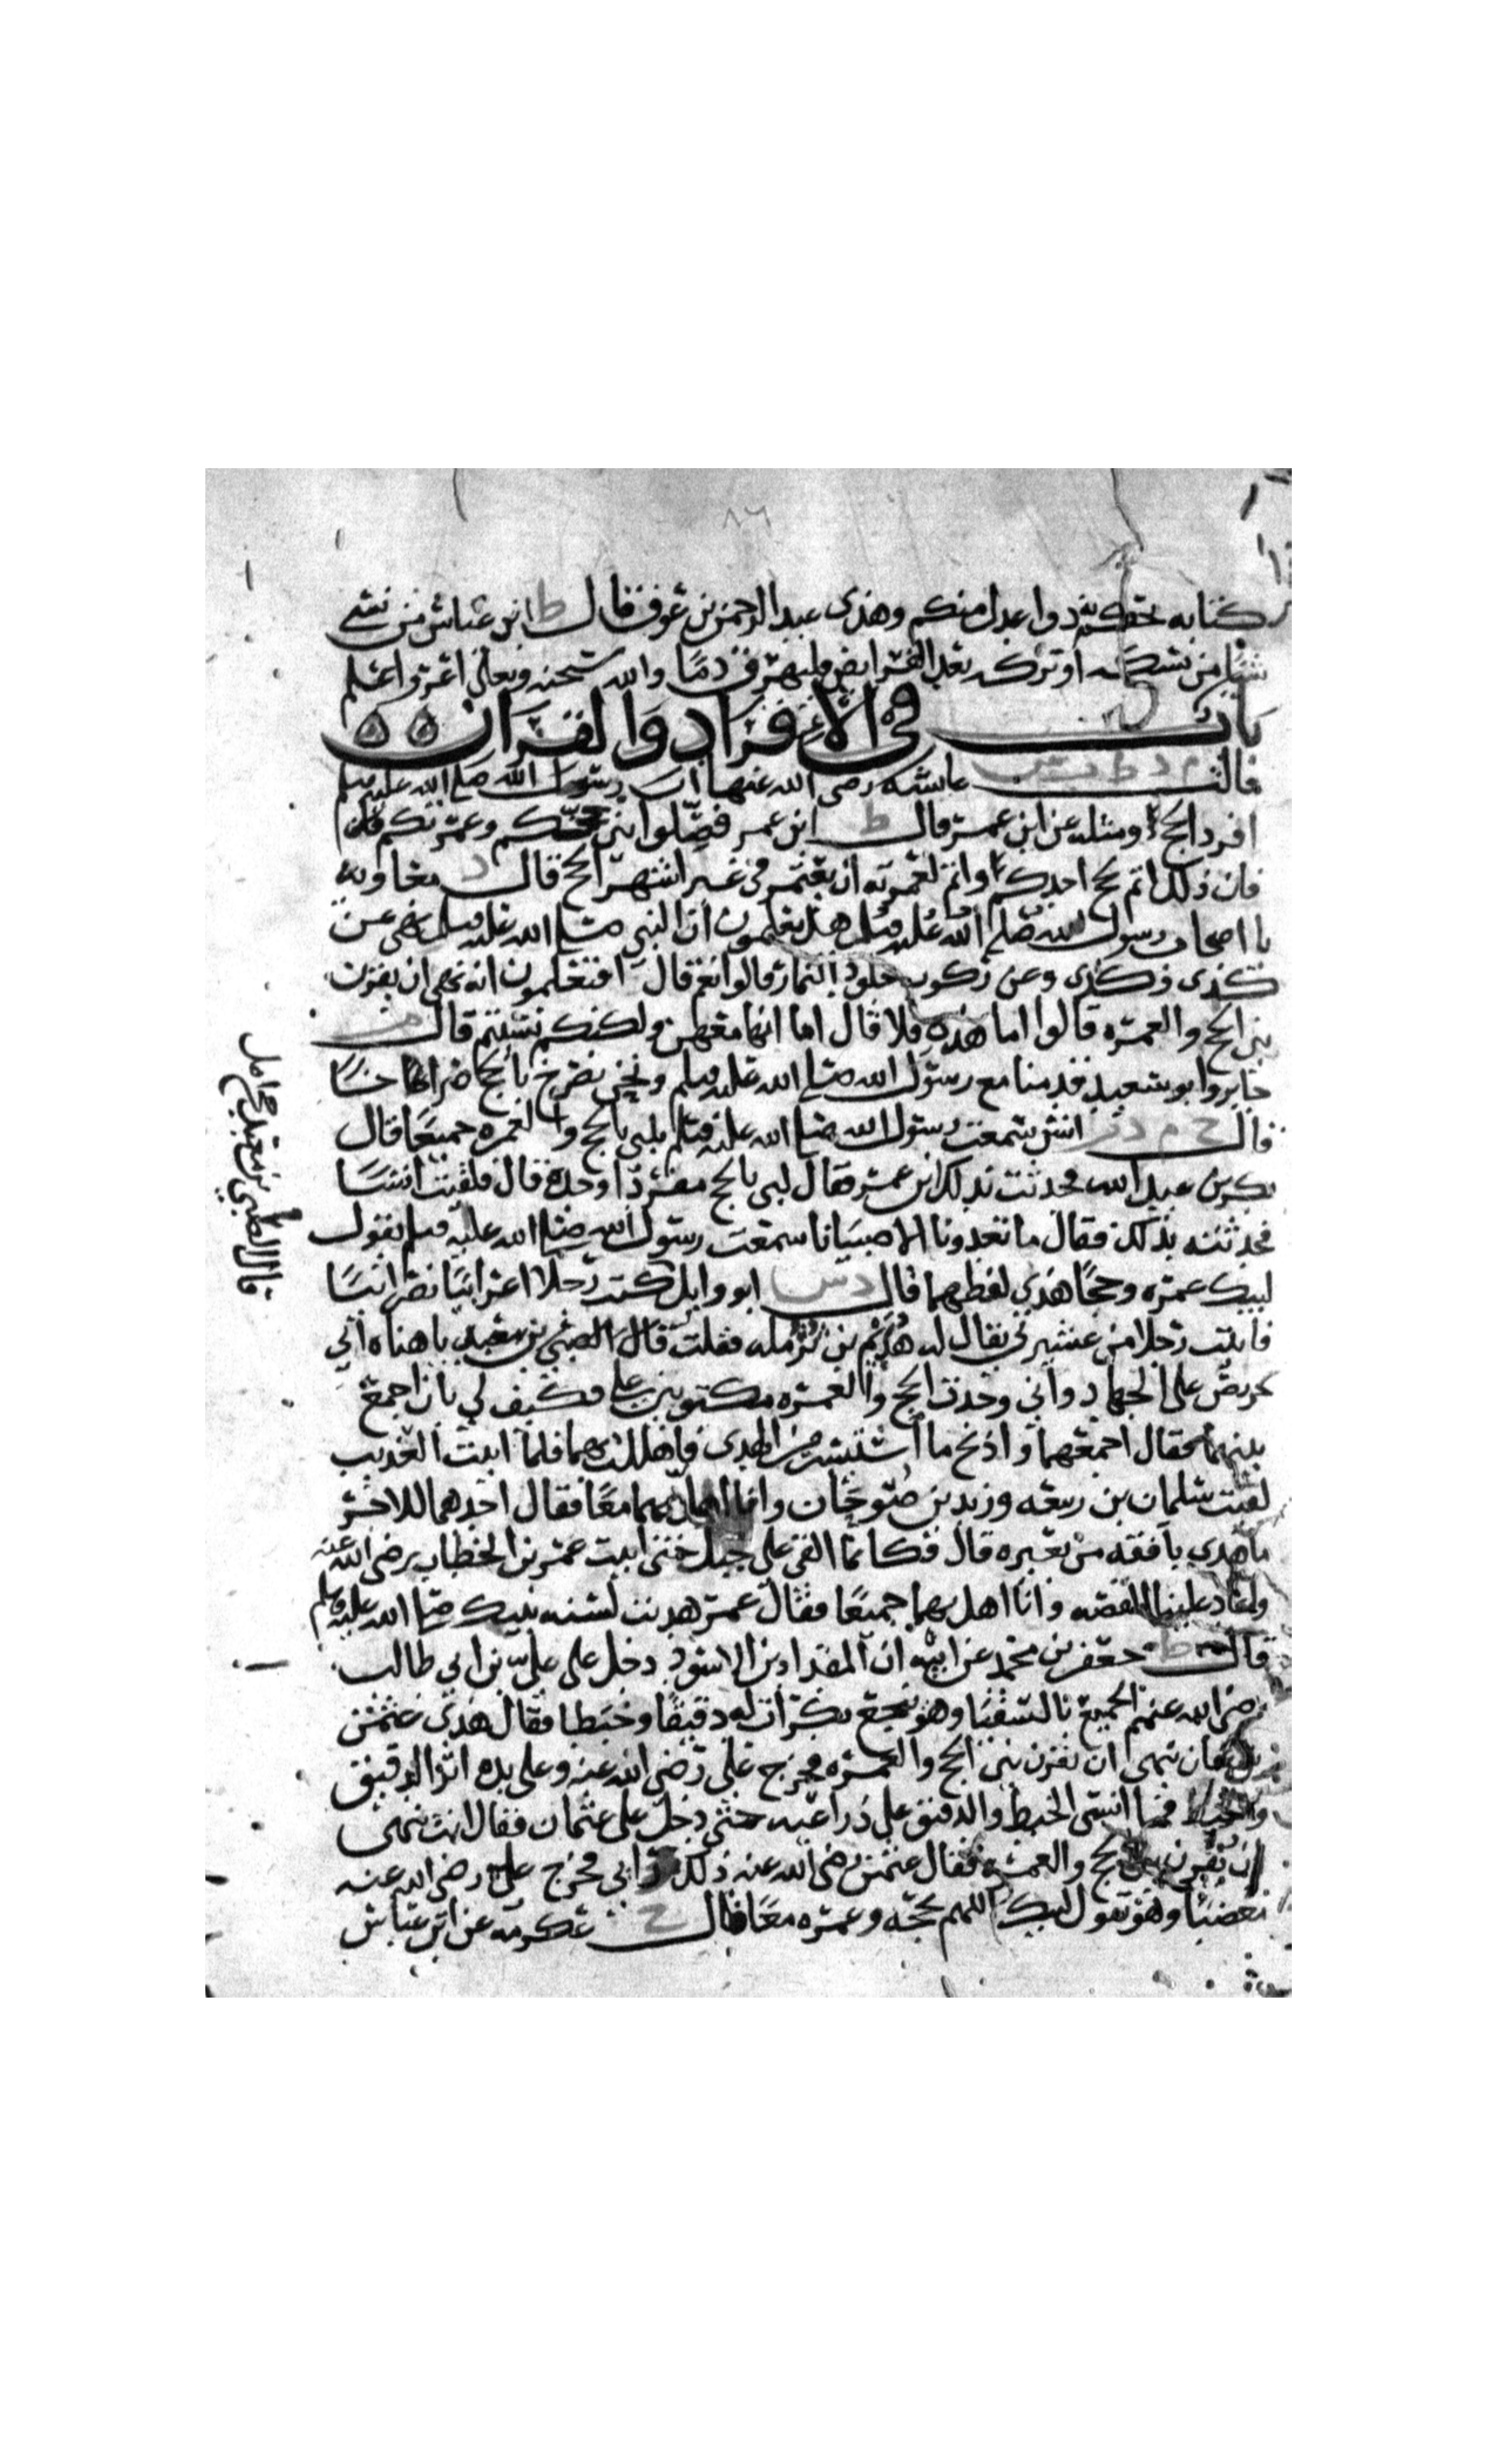 كتابه يحكم به ذوا عدل منكم وهذى عبد الرحمن بن عوف قال ط ابن عباس من نسى
شيا من نسكه او تركه بعد الفرايض فليهرق دما والله سبحنه وتعالى اعز واعلم
باب في الافراد والقران ٥٥
قالت م د ط ت س عايشه رضى الله عنها ان رسول الله صلى الله عليه وسلم
افرد الحج ومثله عن ابن عمر قال ط ابن عمر فصلوا بين حجكم وعمرتكم فان
فان ذلك اتم لحج احدكم واتم لعمرته ان يعتمر في غير اشهر الحج قال د معاويه
يا اصحاب رسول الله صلى الله عليه وسلم هل تعلمون ان النبي صلى الله عليه وسلم نهى عن
كذى وكذى وعن ركوب جلود النمار قالوا نعم قال افتعلمون انه نهى ان يقرن
بين الحج والعمره قالوا اما هذه فلا قال اما انها معهن ولكنكم نسيتم قال م
جابر وابو سعيد قدمنا مع رسول الله صلى الله عليه وسلم ونحن نصرخ بالحج صراخا
قال خ م د انس سمعت رسول الله صلى الله عليه وسلم يلبي بالحج والعمره جميعا قال
بكر بن عبد الله فحدثت بذلك ابن عمر فقال لبى بالحج مفردا وحده قال فلقيت انسا
فحدثته بذلك فقال ما تعدونا الا صبيانا سمعت رسول الله صلى الله عليه وسلم يقول
لبيك عمره وحجا هذى لفظهما قال د س ابو وايل كنت رجلا اعرابيا نصرانيا
فاتيت رجلا من عشيرتي يقال له هذيم بن ثرمله فقلت قال الصبي بن معبد يا هناه اني
حريص على الجهاد واني وجدت الحج والعمره مكتوبين علي فكيف لي بان اجمع
بينهما فقال اجمعهما واذبح ما استيسر من الهدى فاهللت بهما فلما اتيت العذيب
لقيت سلمان بن ربيعه وزيد بن صوحان وانا اهل بهما معا فقال احدهما للاخر
ما هذى بافقه من بعيره قال فكانما القى على جبل حتى اتيت عمر بن الخطاب رضى الله عنه
واعاد علينا القصه وانا اهل بهما جميعا فقال عمر هديت لسنه نبيك صلى الله عليه وسلم
قال ط جعفر بن محمد عن ابيه ان المقداد بن الاسود دخل على علي بن ابي طالب
رضى الله عنهم الجميع بالسقيا وهو ينجع بكرات له دقيقا وخبطا فقال هذى عثمن
بن عفان ينهى ان يقرن بين الحج والعمره فخرج علي رضى الله عنه وعلى يده اثر الدقيق
والخبط فما انسى الخبط والدقيق على ذراعيه حتى دخل على عثمان فقال انت تنهى
ان يقرن بين الحج والعمره فقال عثمن رضى الله عنه ذلك رايي فخرج علي رضى الله عنه
مغضبا وهو يقول لبيك اللهم بحجه وعمره معا قال خ عكرمه عن ابن عباس
قال الصبي بن معبد